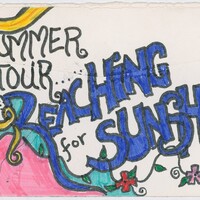 SUMMER
TOUR...
REACHING
for SUNSH